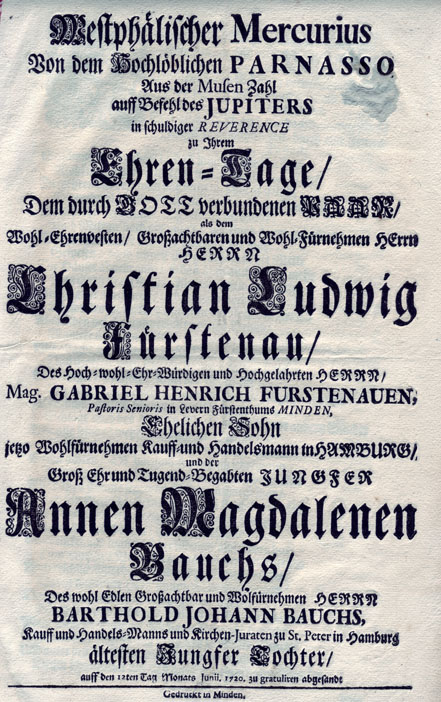 Westphälischer Mercurius
Von dem Hochlöblichen PARNASSO
Aus der Musen Zahl
auff Befehl des JUPITERS
in schuldiger REVERENCE
zu Ihrem
Ehren-Tage/
Dem durch GOTT verbundenen PAAR/
als dem
Wohl-Ehrenvesten/ Großachtbaren und Wohl-Fürnehmen HErrn
HERRN
Christian Ludwig
Fürstenau/
Des Hoch-wohl-Ehr-Würdigen und Hochgelahrten HERRN/
Mag. GABRIEL HENRICH FURSTENAUEN,
Pastoris Senioris in Levern Fürstenthums MINDEN,
Ehelichen Sohn
jetzo Wohlfürnehmen Kauff-und Handelsmann in HAMBURG/
und der
Groß Ehr und Tugend-Begabten JUNGFER
Annen Magdalenen
Bauchs/
Des wohl Edlen Großachtbar und Wolfürnehmen HERRN
BARTHOLD JOHANN BAUCHS,
Kauff und Handels-Manns und Kirchen-Juraten zu St. Peter in Hamburg
ältesten Jungfer Tochter/
auff den 12ten Tag Monats Junii. 1720. zu gratuliren abgesandt
Gedruckt in Minden.